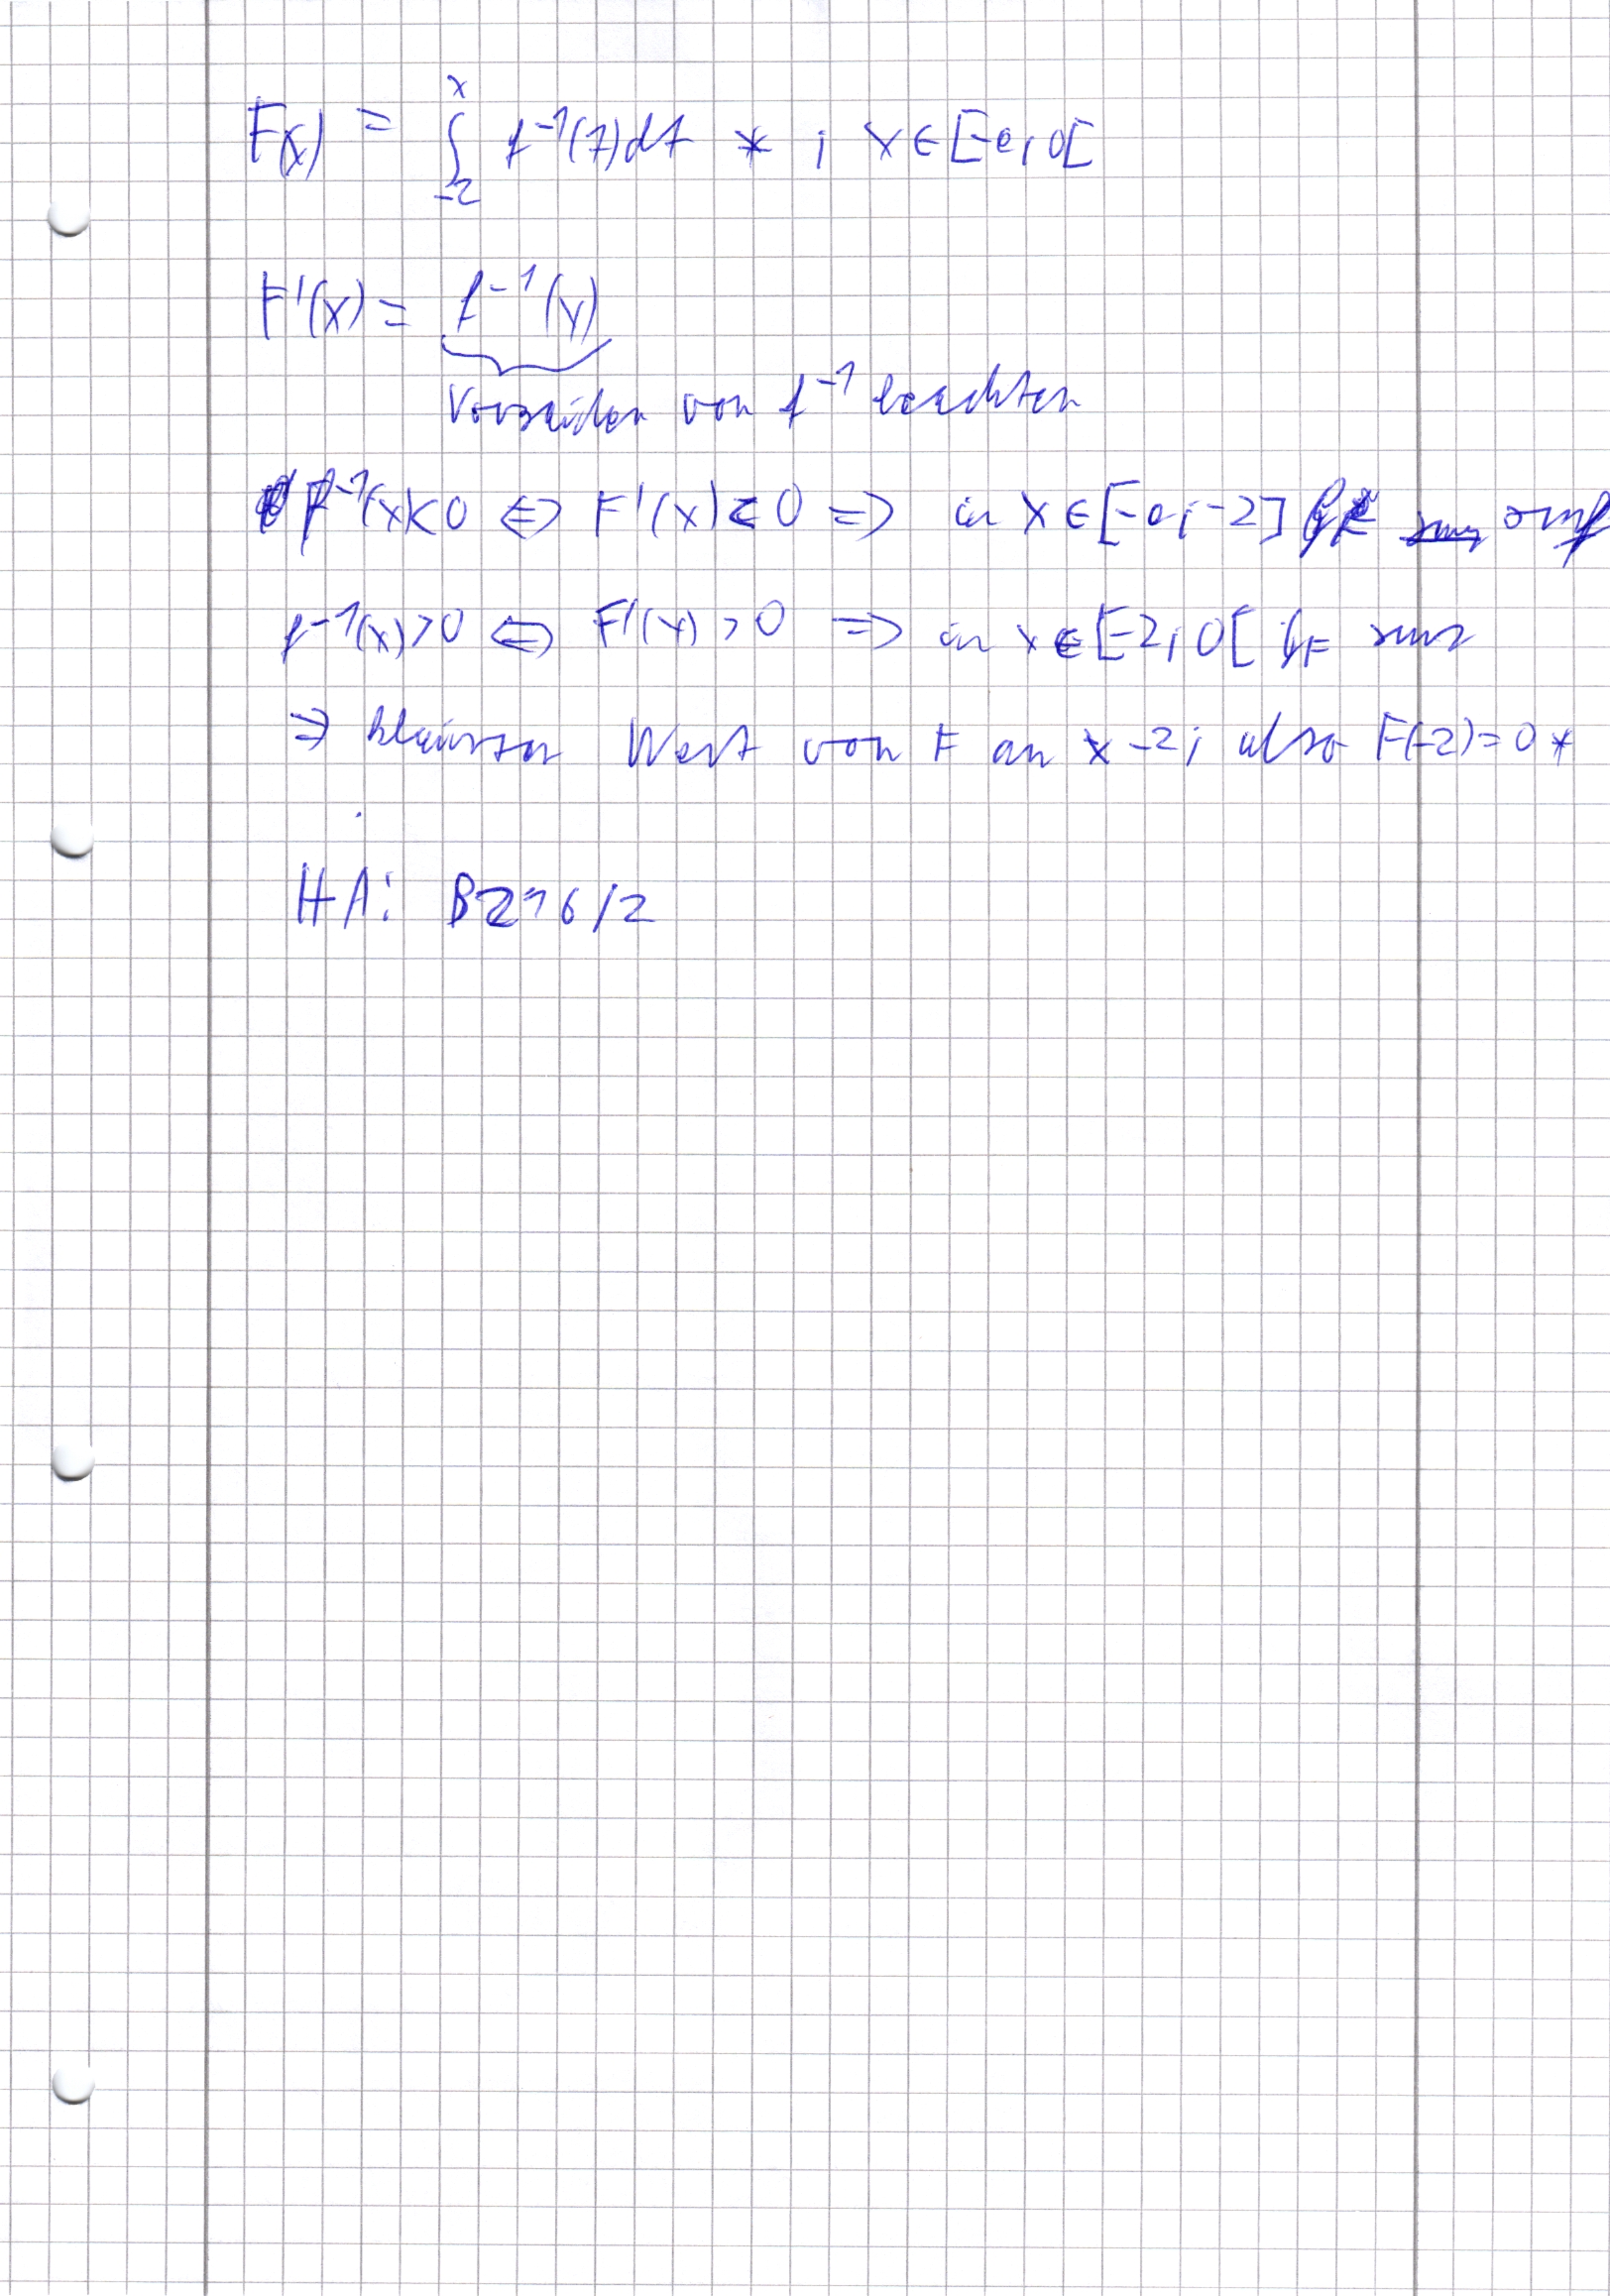 F(x) = ∫_{-2}^{x} f⁻¹(t)dt * ; x ∈ [-e; 0[
F'(x) = f⁻¹(x)
Vorzeichen von f⁻¹ beachten
f⁻¹(x) < 0 ⇔ F'(x) < 0 ⇒ in x ∈ [-e; -2] G_F smf
f⁻¹(x) > 0 ⇔ F'(x) > 0 ⇒ in x ∈ [-2; 0[ G_F sms
⇒ kleinster Wert von F an x -2; also F(-2) = 0 *
HA: B216/2